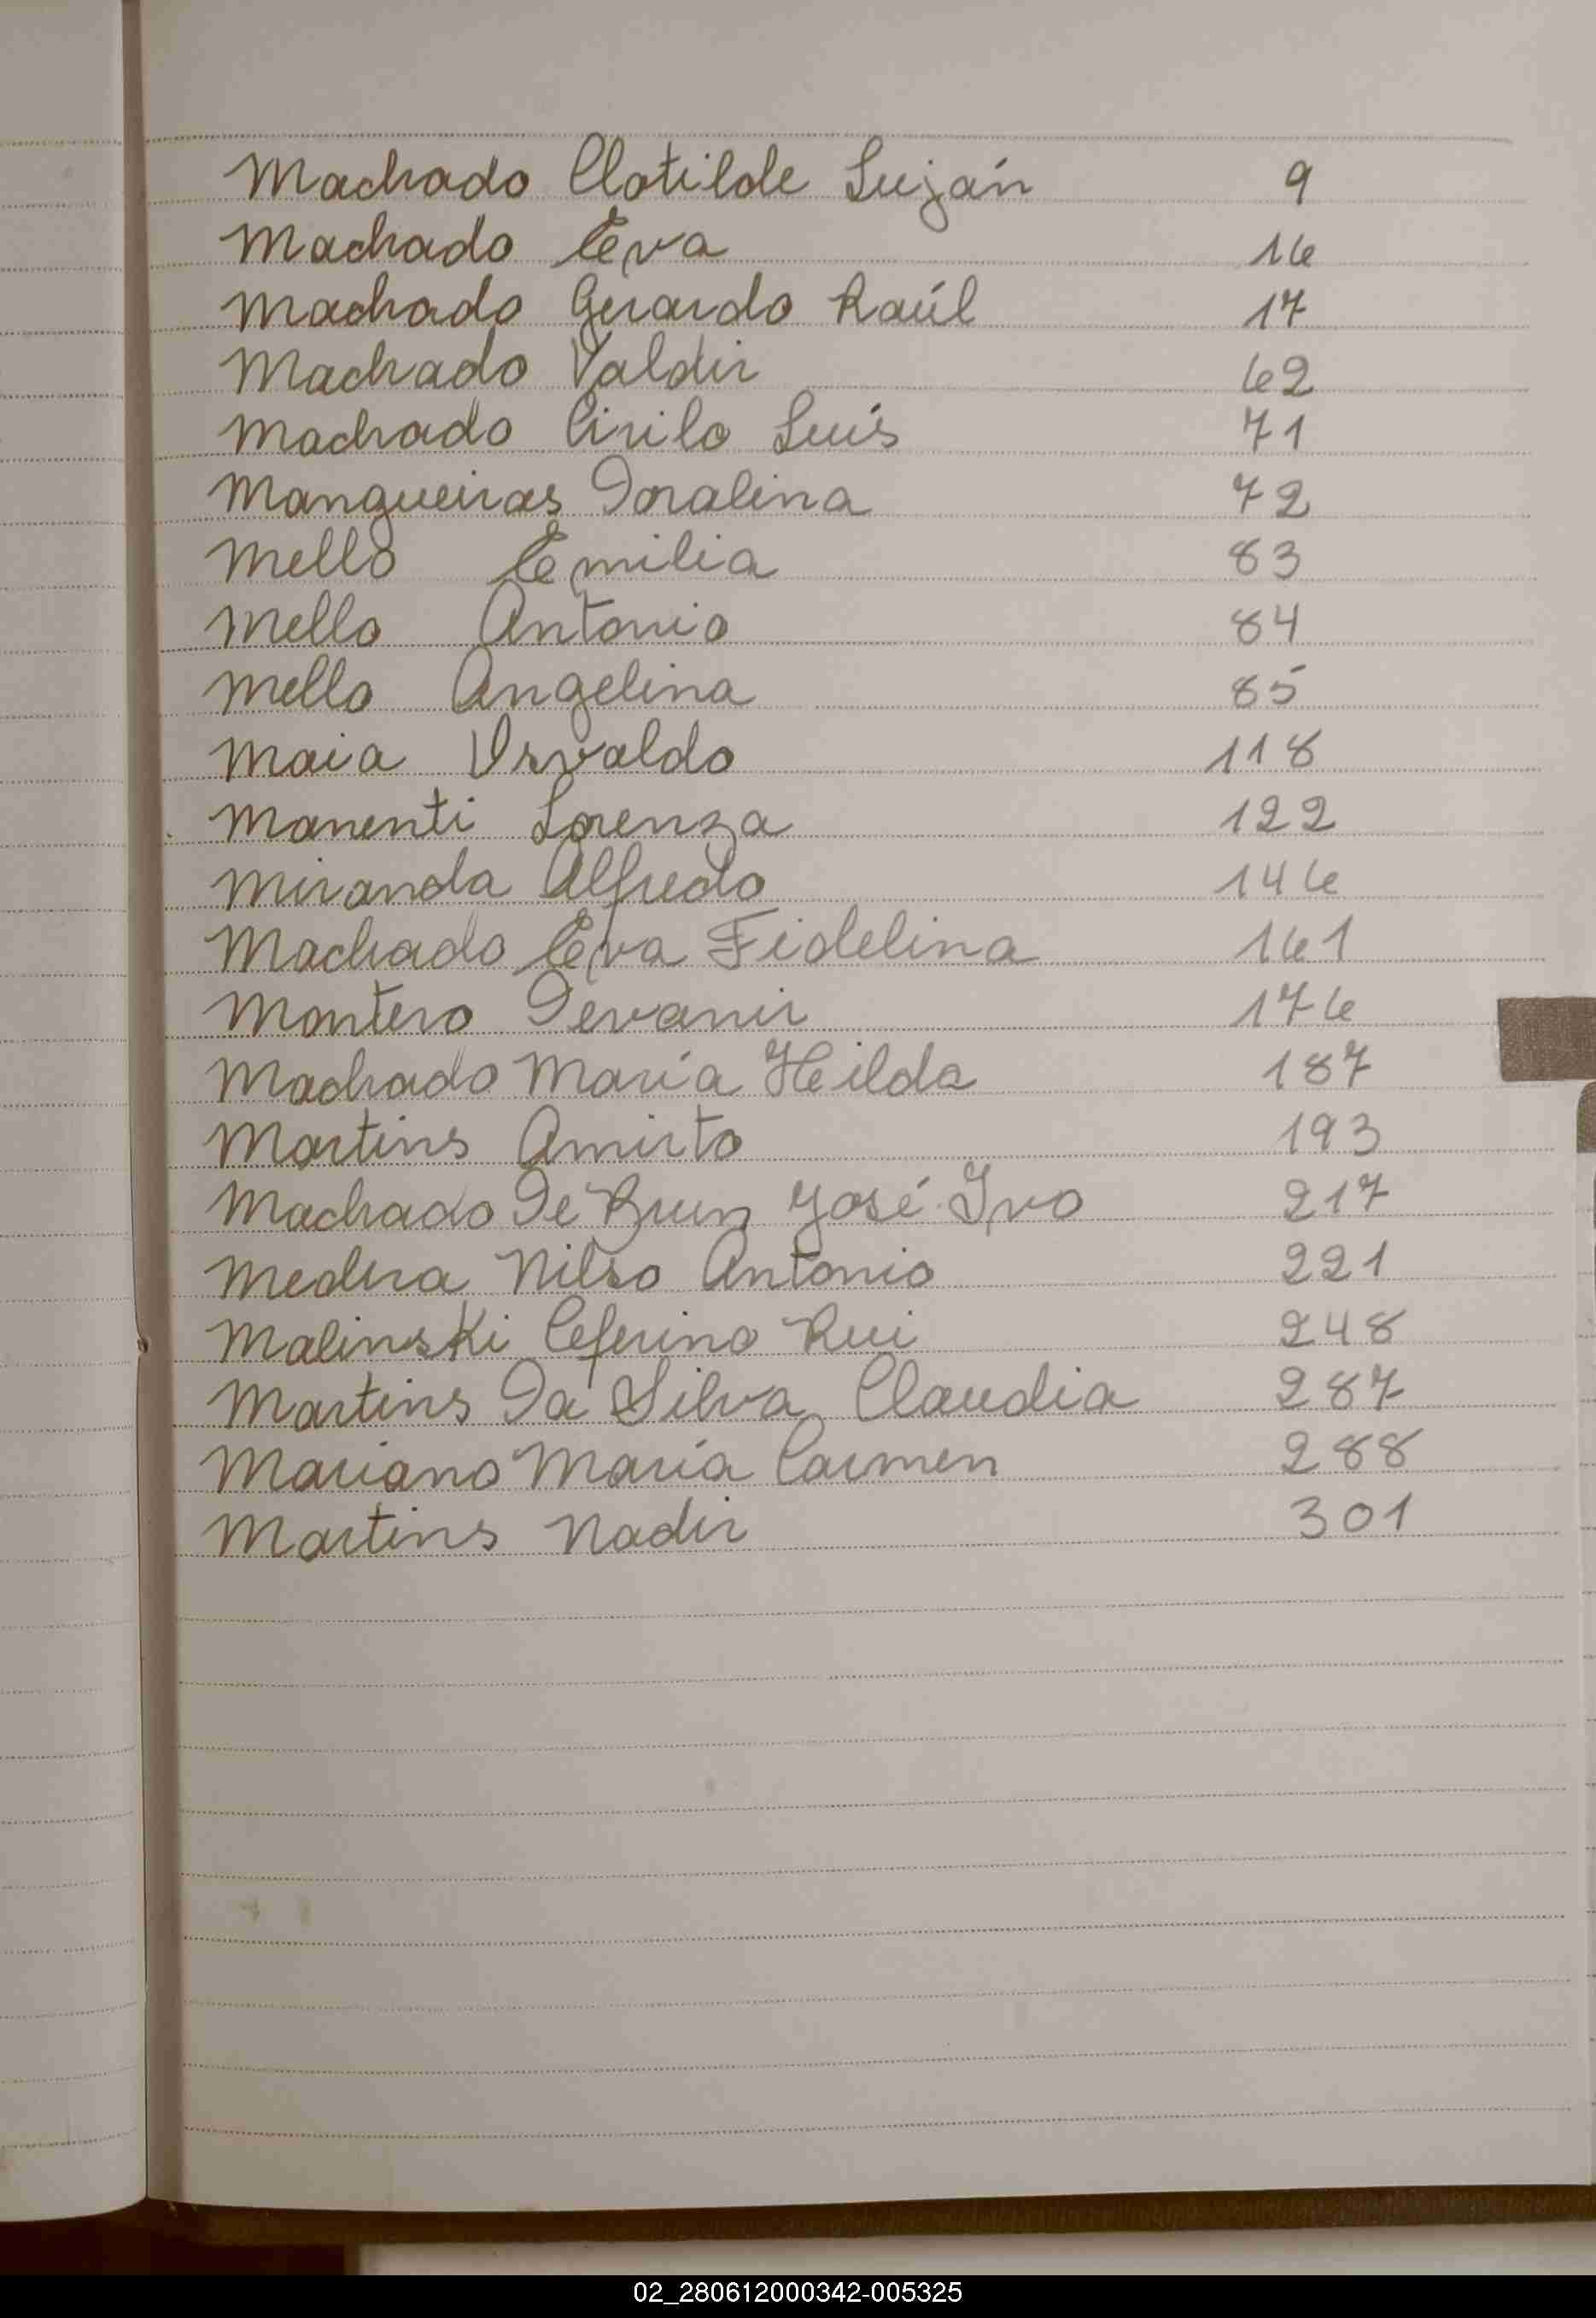 Machado Clotilde Luján 9
Machado Eva 16
Machado Gerardo Raúl 17
Machado Valdir 62
Machado Cirilo Luis 71
Mangueiras Doralina 72
Mello Emilia 83
Mello Antonio 84
Mello Angelina 85
Maia Osvaldo 118
Manenti Lorenza 122
Miranda Alfredo 146
Machado Eva Fidelina 161
Montero Devanir 176
Machado María Heilda 187
Martins Amirto 193
Machado De Brum José Ivo 217
Medera Nilso Antonio 221
Malinski Ceferino Rui 248
Martins Da Silva Claudia 287
Mariano María Carmen 288
Martins Nadir 301
02_280612000342-005325